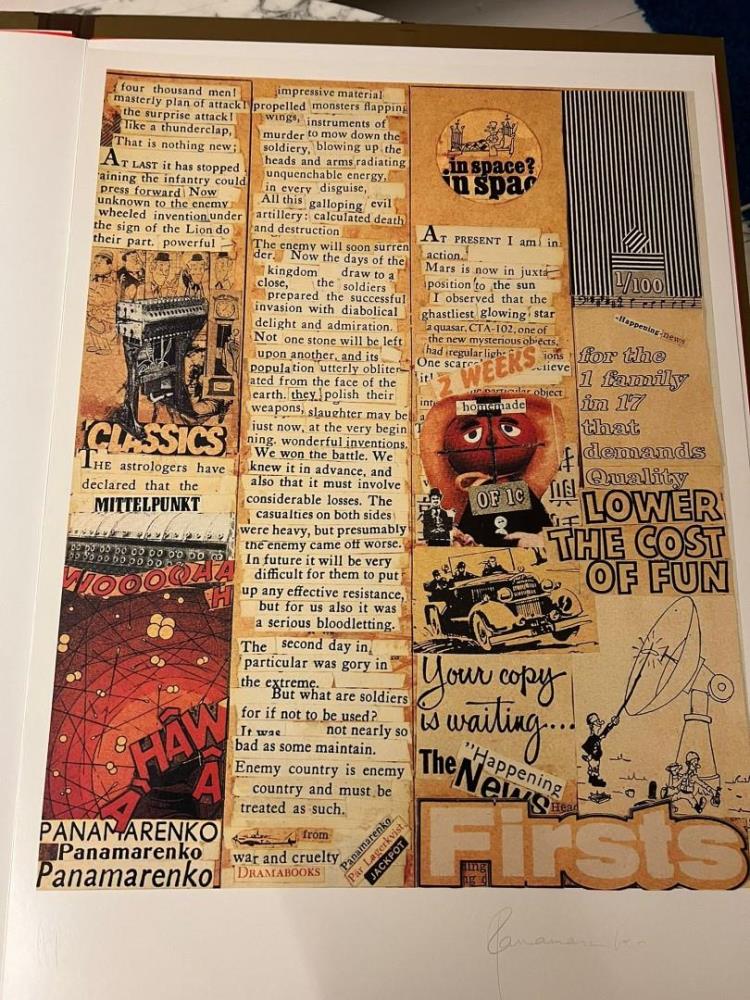 four thousand men!
masterly plan of attack!
the surprise attack!
like a thunderclap,
That is nothing new;
AT LAST it has stopped
raining the infantry could
press forward Now
unknown to the enemy
wheeled invention under
the sign of the Lion do
their part. powerful
CLASSICS
THE astrologers have
declared that the
MITTELPUNKT
HÂW
PANAMARENKO
Panamarenko
Panamarenko
impressive material
propelled monsters flapping
wings, instruments of
murder to mow down the
soldiery, blowing up the
heads and arms radiating
unquenchable energy,
in every disguise,
All this galloping evil
artillery: calculated death
and destruction
The enemy will soon surren
der. Now the days of the
kingdom draw to a
close, the soldiers
prepared the successful
invasion with diabolical
delight and admiration.
Not one stone will be left
upon another, and its
population utterly obliter
ated from the face of the
earth. they polish their
weapons, slaughter may be
just now, at the very begin
ning. wonderful inventions.
We won the battle. We
knew it in advance, and
also that it must involve
considerable losses. The
casualties on both sides
were heavy, but presumably
the enemy came off worse.
In future it will be very
difficult for them to put
up any effective resistance,
but for us also it was
a serious bloodletting.
The second day in
particular was gory in
the extreme.
But what are soldiers
for if not to be used?
It was not nearly so
bad as some maintain.
Enemy country is enemy
country and must be
treated as such.
from
war and cruelty
DRAMABOOKS
Panamarenko
Par Lagerkvist
JACKPOT
in space?
in spac
AT PRESENT I am in
action.
Mars is now in juxta
position to the sun
I observed that the
ghastliest glowing star
a quasar, CTA-102, one of
the new mysterious objects,
had irregular light ions
One scarc elieve
it!
particular object
2 WEEKS
homemade
OF 1¢
Your copy
is waiting...
The "Happening
News
Head
Firsts
1/100
"Happening-news
for the
1 family
in 17
that
demands
Quality
LOWER
THE COST
OF FUN
Panamarenko